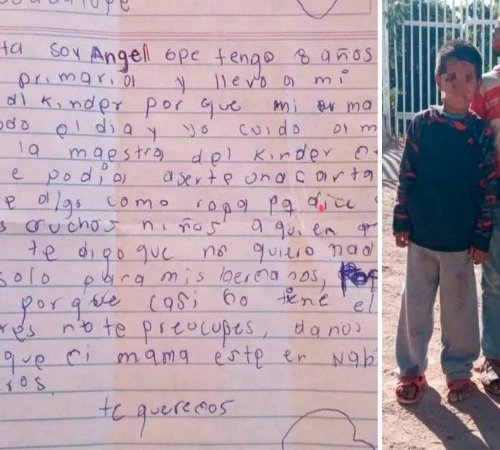 ta soy Angel ope tengo 8 años
primaria y llevo a mi
al kinder por que mi ma
odo el dia y yo cuido a m
la maestra del kinder
e podia aserte una carta
e digo como ropa pa dice
s muchos niños aqui en
te digo que no quiero nad
solo para mis hermanos,
por que casi no tiene el
res no te preocupes, danos
que ci mama este en Nab
ros.
te queremos